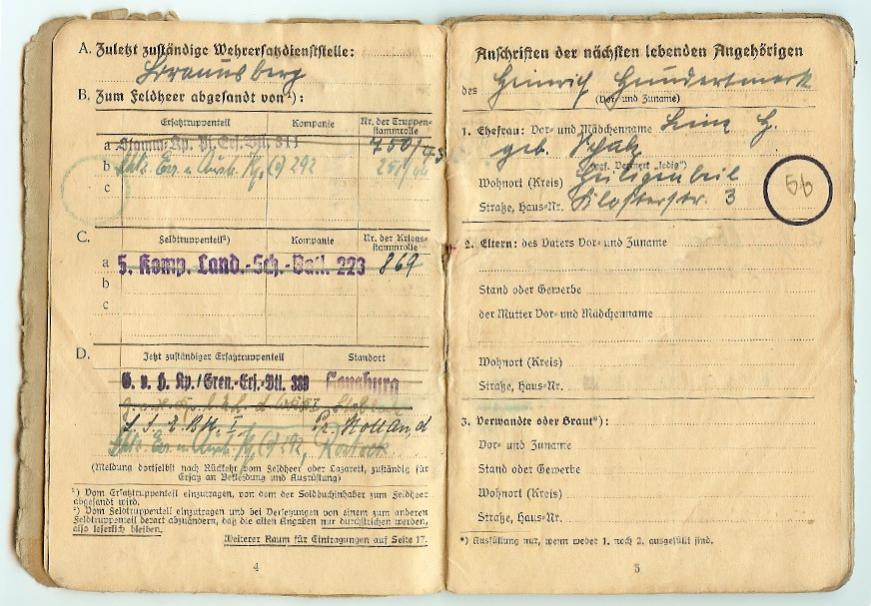 A. Zuletzt zuständige Wehrersatzdienststelle:
Braunsberg
B. Zum Feldheer abgesandt von¹):
Ersatztruppenteil Kompanie Nr. der Truppenstammrolle
a Stamm-Kp. Pi. Ers. Btl. 311 750/43
b (9) 292 251/44
c
C. Feldtruppenteil²) Kompanie Nr. der Kriegsstammrolle
a 5. Komp. Land.-Sch.-Batl. 223 869
b
c
D. Jetzt zuständiger Ersatztruppenteil Standort
G. v. H. Kp./Gren.-Ers.-Btl. 389
Pr. Holland
(9) 292, Rostock
(Meldung dortselbst nach Rückkehr vom Feldheer oder Lazarett, zuständig für
Ersatz an Bekleidung und Ausrüstung)
¹) Vom Ersatztruppenteil einzutragen, von dem der Soldbuchinhaber zum Feldheer
abgesandt wird.
²) Vom Feldtruppenteil einzutragen und bei Versetzungen von einem zum anderen
Feldtruppenteil derart abzuändern, daß die alten Angaben nur durchstrichen werden,
also leserlich bleiben.
Weiterer Raum für Eintragungen auf Seite 17.
4
Anschriften der nächsten lebenden Angehörigen
des Heinrich Hundertmark
(Vor- und Zuname)
1. Ehefrau: Vor- und Mädchenname H.
geb. Schulz
(ggf. Vermerk „ledig")
Wohnort (Kreis) Heiligenbeil
Straße, Haus-Nr. Klosterstr. 3
56
2. Eltern: des Vaters Vor- und Zuname
Stand oder Gewerbe
der Mutter Vor- und Mädchenname
Wohnort (Kreis)
Straße, Haus-Nr.
3. Verwandte oder Braut*):
Vor- und Zuname
Stand oder Gewerbe
Wohnort (Kreis)
Straße, Haus-Nr.
*) Ausfüllung nur, wenn weder 1. noch 2. ausgefüllt sind.
5